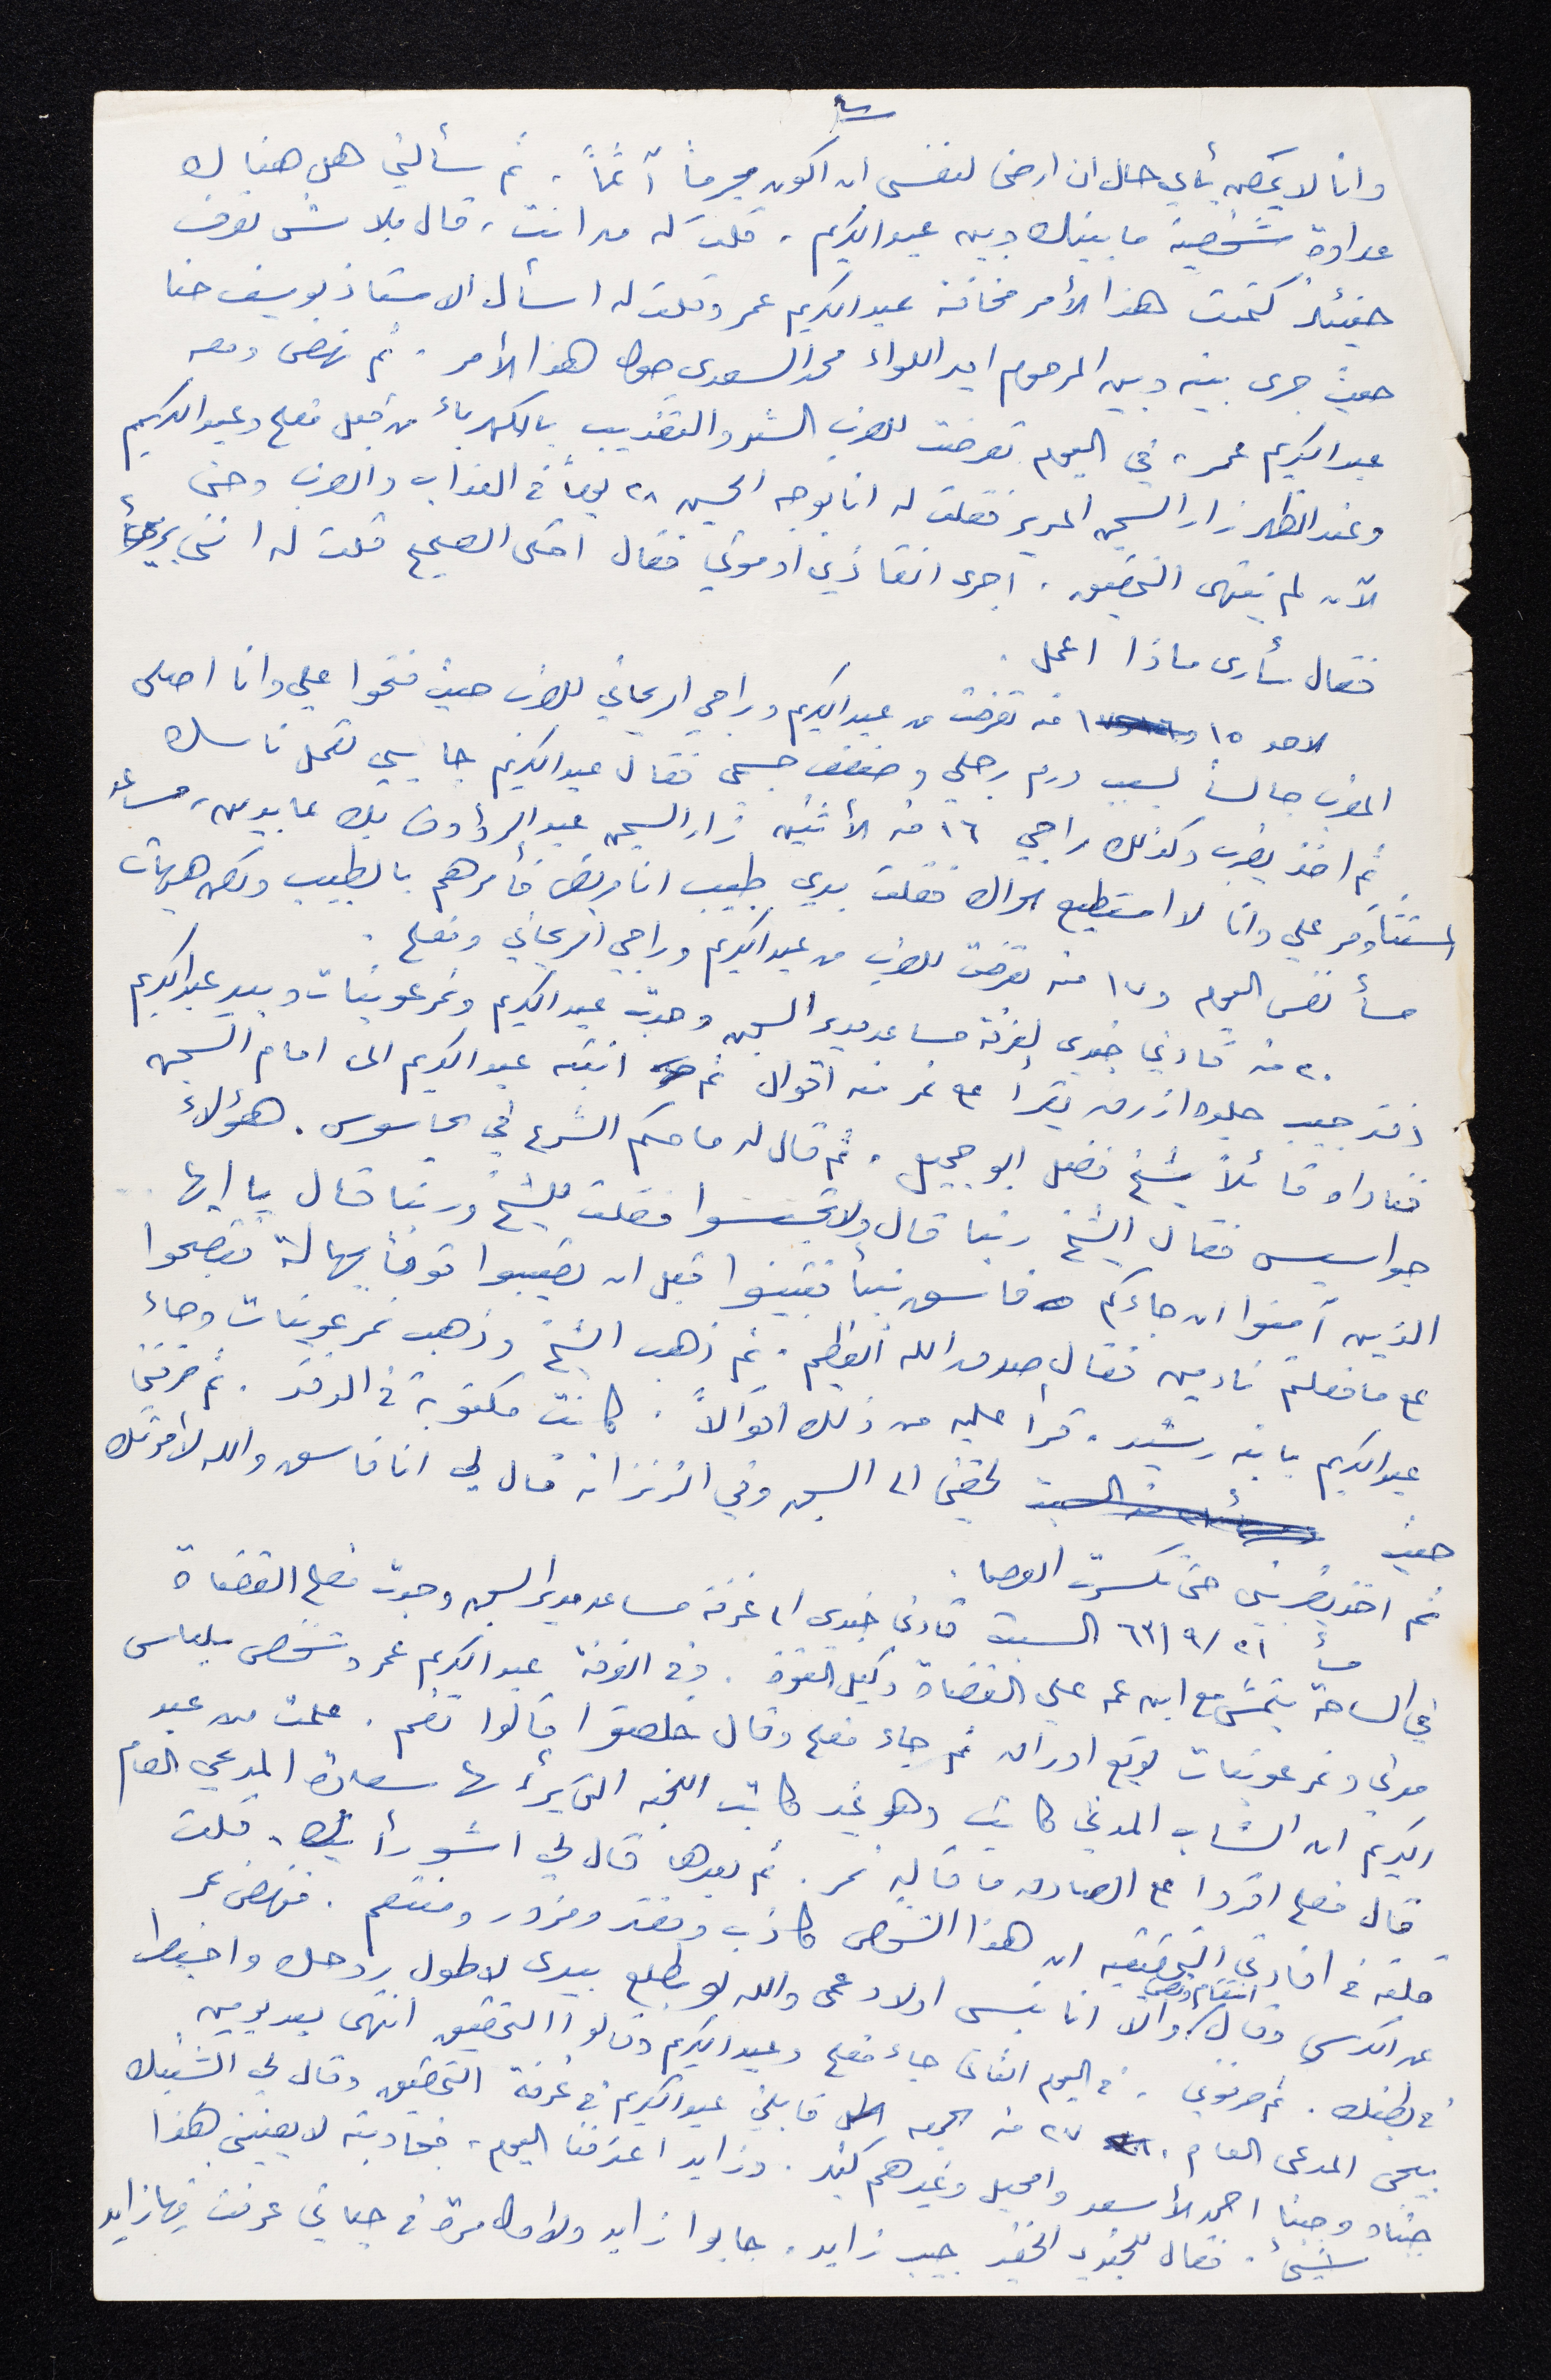 وانا لا يمكن بأي حال ان ارضى لنفسي ان اكون مجرماً آثماً . ثم سألني هل هناك
عداوة شخصية ما بينك وبين عبد الكريم . قلت له من انت ، قال بلاش تعرف
حينئذ كتمت هذا الأمر مخافة عبد الكريم عمر وقلت له اسأل الاستاذ يوسف حنا
حيث جرى بينه وبين المرحوم امير اللواء محمد السعدي حول هذا الأمر . ثم نهض ومعه
عبد الكريم عمر ، في اليوم تعرضت للضرب الشديد والتعذيب بالكهرباء من قبل فلاح وعبد الكريم
وعند الظهر زار السجن المدير فقلت له انا بوجه الحسين ٢٨ يوماً في العذاب والضرب وحتى
الآن لم ينتهى التحقيق . ارجو انقاذي او موتي فقال احكي الصحيح قلت له انني بريء
فقال سأرى ماذا اعمل .
الاحد ١٥ منه تعرضت من عبد الكريم وراجي الريحاني للضرب حيث فتحوا علي وانا اصلي
المغرب جالساً بسبب ورم رجلي وضعف جسمي فقال عبد الكريم جاييي تعمل ناسك
ثم اخذ يضرب وكذلك راجي ١٦ منه الأثنين زار السجن عبد الرؤوف بك عابدين ، مساعد
المستنتاوفر علي وانا لا استطيع الحراك فقلت بدي طبيب انا مريض فأمرهم بالطبيب ولكن هيهات
مسأ نفس اليوم و ١٧ منه تعرضت للضرب من عبد الكريم وراجي الريحاني وفلاح .
٢٠ منه قادني جندي لغرفة مساعد مدير السجن وجدت عبد الكريم ونمر عوينات وبيد عبد الكريم
دفتر جيب جلده ازرق يقرأ على نمر منه اقوال ثم انتبه عبد الكريم الى امام السجن
فناداه قائلاً يا شيخ فضل ابو جميل . ثم قال له ما حكم الشرع في الجاسوس . هؤلاء
جواسيس فقال الشيخ ربنا قال ولا تجسسوا فقلت للشيخ وربنا قال يا ايها
الذين آمنوا ان جاءكم فاسق بنبأ فتبينوا قبل ان تصيبوا قوماً بجهالة فتصبحوا
على ما فعلتم نادمين فقال صدق الله العظيم . ثم ذهب الشيخ وذهب نمر عوينات وجاء
عبد الكريم بابنه رشيد . قرأ عليه من ذلك اقوالاً . كانت مكتوبة في الدفتر . ثم صرفني
حيث لحقني الى السجن وفي الزنزانة قال لي انا فاسق والله لأموتك
ثم اخذ يضربني حتى تكسرت العصا .
مسأ ٢١/٩/٦٣ السبت قادني جندي الى غرفة مساعد مدير السجن وجدت فلاح القضاة
في الساحة يتمشى مع ابن عمه علي القضاة وكيل القوة . وفي الغرفة عبد الكريم عمر وشخص بلباس
مدني ونمر عوينات يوقع اوراق ثم جاء فلاح وقال خلصتوا قالوا نعم . علمت من عبد
الكريم ان الشاب المدني كاتب وهو غير كاتب اللجنة التي يرأسها سعادة المدعي العام
قال فلاح اقرؤا على الصادق ما قاله نمر . ثم بعدها قال لي اشو رأيك . قلت
قلته في افادتي التحقيقية ان هذا الشخص كاذب ومفتر ومزور ومنتقم . فنهض نمر
عن الكرسي وقال والا انا بنسى اولاد عمي والله لو بطلع بيدي لاطول روحك واخبط
في بطنك . ثم ضربوني . في اليوم الثاني جاء فلاح وعبد الكريم وقالوا التحقيق انتهى بعد يومين
بيجي المدعي العام . ٢٧ منه الجمعه قابلني عبد الكريم في غرفة التحقيق وقال لي الشنبك
جبناه وجبنا احمد الأسعد واسحيل وغيرهم كثير . وزايد اعترفنا اليوم ، فجاوبته لا يعنيني هذا
شيئ . فقال للجندي الخفير جيب زايد . جابوا زايد ولاول مرة في حياتي عرفت فيها زايد